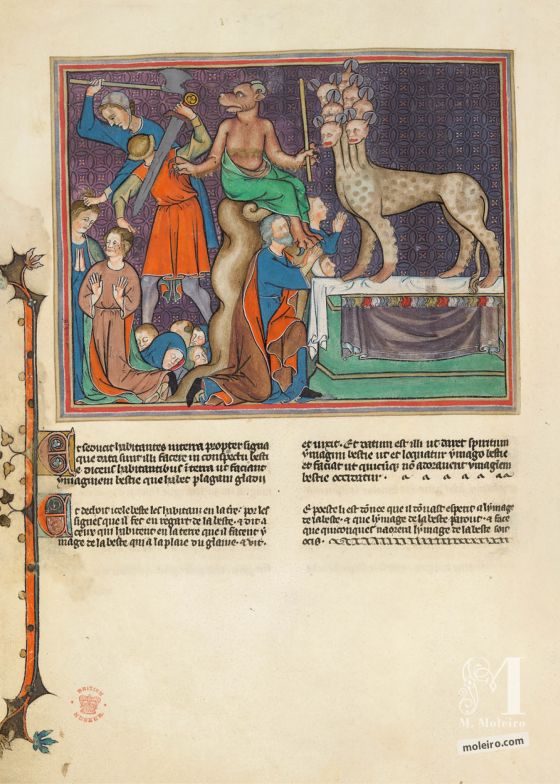 Et seduxit habitantes in terra propter signa
que data sunt illi facere in conspectu besti
e dicens habitantibus i terra ut faciant
ymaginem bestie que habet plagam gladii
et vixit. Et datum est illi ut daret spiritum
ymagini bestie ut et loquatur ymago bestie
et faciat ut quicuq; nō adoraverit ymaginem
bestie occidatur.
Et deduit icele beste les habitans en la tre. por les
signes que il fet en regart de la beste. a dit a
ceux qui habitent en la terre que il facent y
mage de la beste qui a la plaie du glaive. a vit.
E poeste li est donee que il donast esperit a lymage
de la beste. a que lymage de la beste parout. a face
que quicunques naorent lymage de la beste soit
ocis.
BRITISH
MUSEUM
M
M. Moleiro
moleiro.com